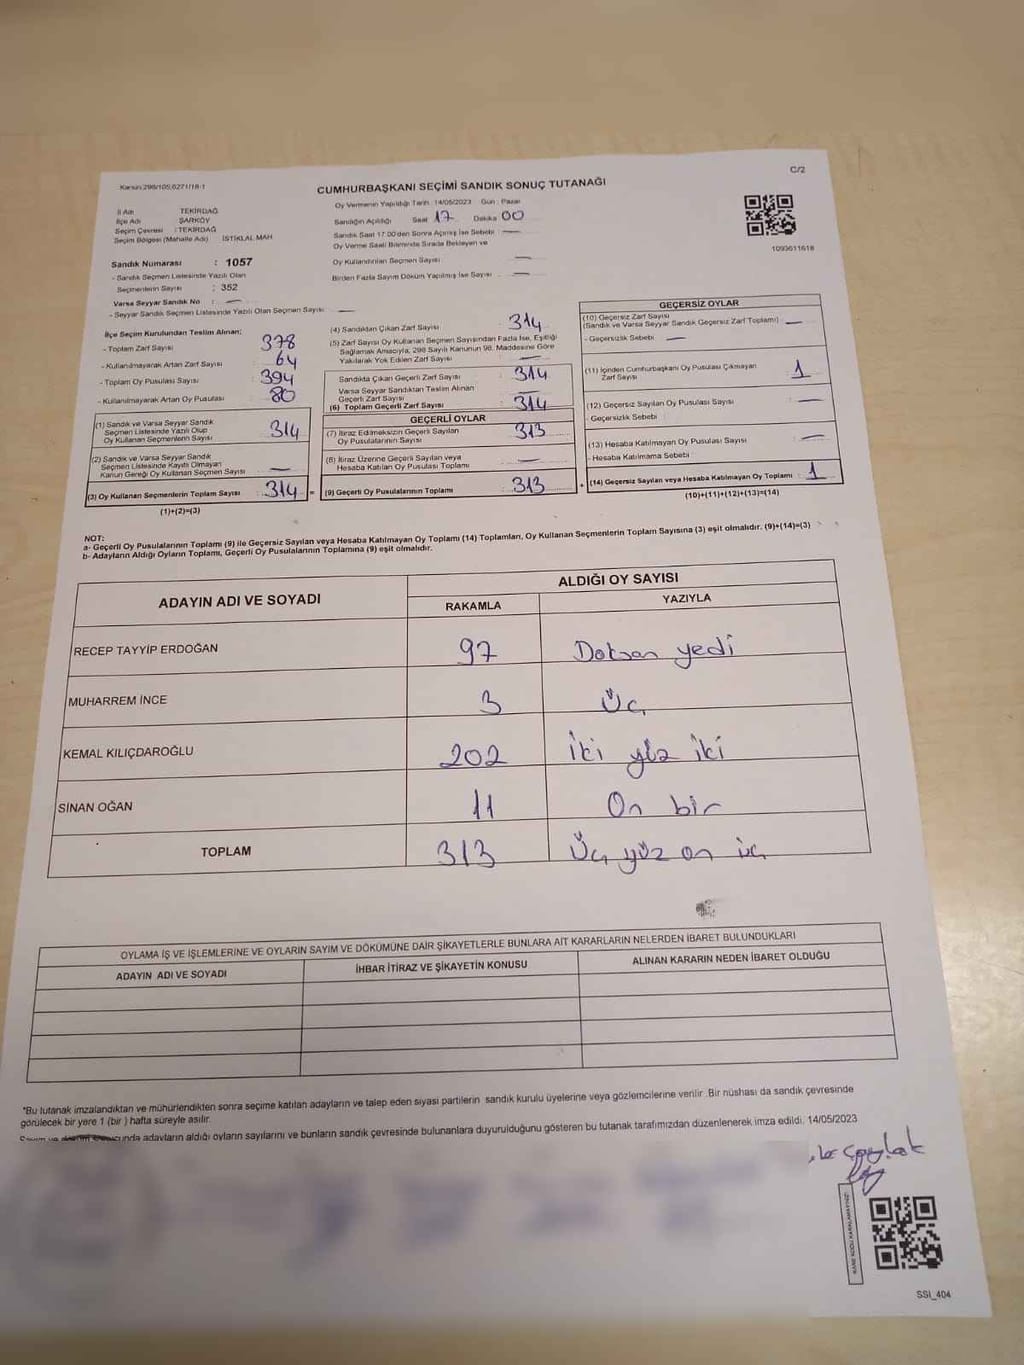 Kanun:298/105,6271/18-1
C/2
CUMHURBAŞKANI SEÇİMİ SANDIK SONUÇ TUTANAĞI
İl Adı TEKİRDAĞ
İlçe Adı ŞARKÖY
Seçim Çevresi : TEKİRDAĞ
Seçim Bölgesi (Mahalle Adı) İSTİKLAL MAH
Oy Vermenin Yapıldığı Tarih 14/05/2023 Gün : Pazar
Sandığın Açıldığı Saat 17 Dakika 00
Sandık Saat 17.00'den Sonra Açılmış İse Sebebi : —
Oy Verme Saati Bitiminde Sırada Bekleyen ve
Oy Kullandırılan Seçmen Sayısı —
Birden Fazla Sayım Döküm Yapılmış İse Sayısı —
1093611618
Sandık Numarası : 1057
- Sandık Seçmen Listesinde Yazılı Olan
Seçmenlerin Sayısı : 352
Varsa Seyyar Sandık No : —
- Seyyar Sandık Seçmen Listesinde Yazılı Olan Seçmen Sayısı : —
İlçe Seçim Kurulundan Teslim Alınan;
- Toplam Zarf Sayısı 378
- Kullanılmayarak Artan Zarf Sayısı 64
- Toplam Oy Pusulası Sayısı 394
- Kullanılmayarak Artan Oy Pusulası 80
(1) Sandık ve Varsa Seyyar Sandık
Seçmen Listesinde Yazılı Olup
Oy Kullanan Seçmenlerin Sayısı 314
(2) Sandık ve Varsa Seyyar Sandık
Seçmen Listesinde Kayıtlı Olmayan
Kanun Gereği Oy Kullanan Seçmen Sayısı —
(3) Oy Kullanan Seçmenlerin Toplam Sayısı : 314 =
(1)+(2)=(3)
(4) Sandıktan Çıkan Zarf Sayısı 314
(5) Zarf Sayısı Oy Kullanan Seçmen Sayısından Fazla İse, Eşitliği
Sağlamak Amacıyla, 298 Sayılı Kanunun 98. Maddesine Göre
Yakılarak Yok Edilen Zarf Sayısı —
Sandıkta Çıkan Geçerli Zarf Sayısı 314
Varsa Seyyar Sandıktan Teslim Alınan
Geçerli Zarf Sayısı —
(6) Toplam Geçerli Zarf Sayısı 314
GEÇERLİ OYLAR
(7) İtiraz Edilmeksizin Geçerli Sayılan
Oy Pusulalarının Sayısı 313
(8) İtiraz Üzerine Geçerli Sayılan veya
Hesaba Katılan Oy Pusulası Toplamı —
(9) Geçerli Oy Pusulalarının Toplamı 313 +
GEÇERSİZ OYLAR
(10) Geçersiz Zarf Sayısı
(Sandık ve Varsa Seyyar Sandık Geçersiz Zarf Toplamı) —
- Geçersizlik Sebebi : —
(11) İçinden Cumhurbaşkanı Oy Pusulası Çıkmayan
Zarf Sayısı 1
(12) Geçersiz Sayılan Oy Pusulası Sayısı —
- Geçersizlik Sebebi
(13) Hesaba Katılmayan Oy Pusulası Sayısı —
- Hesaba Katılmama Sebebi
(14) Geçersiz Sayılan veya Hesaba Katılmayan Oy Toplamı : 1
(10)+(11)+(12)+(13)=(14)
NOT:
a- Geçerli Oy Pusulalarının Toplamı (9) ile Geçersiz Sayılan veya Hesaba Katılmayan Oy Toplamı (14) Toplamları, Oy Kullanan Seçmenlerin Toplam Sayısına (3) eşit olmalıdır. (9)+(14)=(3)
b- Adayların Aldığı Oyların Toplamı, Geçerli Oy Pusulalarının Toplamına (9) eşit olmalıdır.
ADAYIN ADI VE SOYADI ALDIĞI OY SAYISI
RAKAMLA YAZIYLA
RECEP TAYYİP ERDOĞAN 97 Doksan yedi
MUHARREM İNCE 3 Üç
KEMAL KILIÇDAROĞLU 202 İki yüz iki
SİNAN OĞAN 11 On bir
TOPLAM 313 Üç yüz on üç
OYLAMA İŞ VE İŞLEMLERİNE VE OYLARIN SAYIM VE DÖKÜMÜNE DAİR ŞİKAYETLERLE BUNLARA AİT KARARLARIN NELERDEN İBARET BULUNDUKLARI
ADAYIN ADI VE SOYADI İHBAR İTİRAZ VE ŞİKAYETİN KONUSU ALINAN KARARIN NEDEN İBARET OLDUĞU
*Bu tutanak imzalandıktan ve mühürlendikten sonra seçime katılan adayların ve talep eden siyasi partilerin sandık kurulu üyelerine veya gözlemcilerine verilir .Bir nüshası da sandık çevresinde
görülecek bir yere 1 (bir ) hafta süreyle asılır.
adayların aldığı oyların sayılarını ve bunların sandık çevresinde bulunanlara duyurulduğunu gösteren bu tutanak tarafımızdan düzenlenerek imza edildi. 14/05/2023
KARE KODU KARALAMAYINIZ!
SSI_404